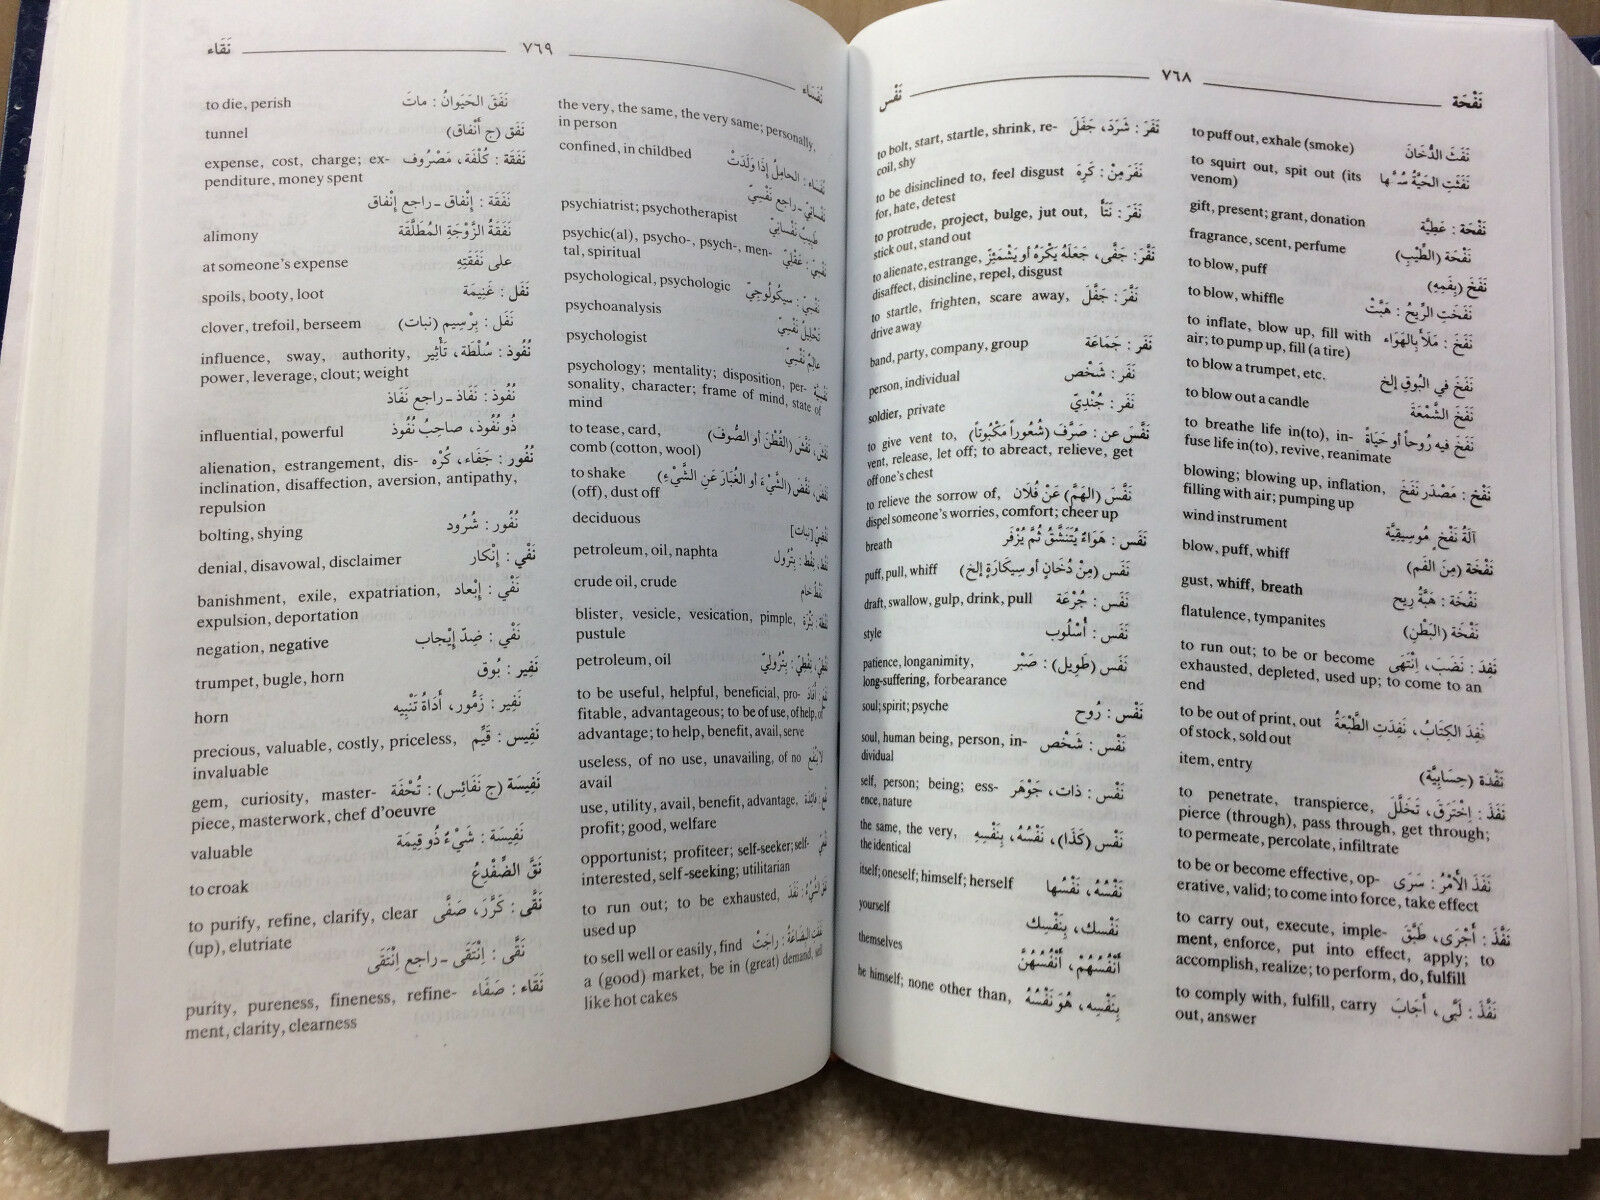 نَفْحَة ٧٦٨ نَفْس
to puff out, exhale (smoke) نَفَثَ الدُّخَانَ
to squirt out, spit out (its نَفَثَتِ الحَيَّةُ سُمَّها
venom)
gift, present; grant, donation نَفْحَة : عَطِيَّة
fragrance, scent, perfume نَفْحَة (الطِّيْبِ)
to blow, puff نَفَخَ (بِفَمِهِ)
to blow, whiffle نَفَخَتِ الرِّيحُ : هَبَّتْ
to inflate, blow up, fill with نَفَخَ : مَلَأَ بِالهَوَاء
air; to pump up, fill (a tire)
to blow a trumpet, etc. نَفَخَ في البُوقِ إلخ
to blow out a candle نَفَخَ الشَّمْعَة
to breathe life in(to), in- نَفَخَ فيه رُوحاً أو حَيَاةً
fuse life in(to), revive, reanimate
blowing; blowing up, inflation, نَفْخ : مَصْدَر نَفَخَ
filling with air; pumping up
wind instrument آلَةُ نَفْخٍ مُوسِيقِيَّة
blow, puff, whiff نَفْخَة (مِنَ الفَم)
gust, whiff, breath نَفْخَة : هَبَّةُ رِيح
flatulence, tympanites نَفْخَة (البَطْنِ)
to run out; to be or become نَفِدَ : نَضَبَ، اِنْتَهَى
exhausted, depleted, used up; to come to an
end
to be out of print, out نَفِدَ الكِتَابُ، نَفِدَتِ الطَّبْعَةُ
of stock, sold out
item, entry نَفْدَة (حِسَابِيَّة)
to penetrate, transpierce, نَفَذَ : اِخْتَرَقَ، تَخَلَّلَ
pierce (through), pass through, get through;
to permeate, percolate, infiltrate
to be or become effective, op- نَفَذَ الأَمْرُ : سَرَى
erative, valid; to come into force, take effect
to carry out, execute, imple- نَفَّذَ : أَجْرَى، طَبَّقَ
ment, enforce, put into effect, apply; to
accomplish, realize; to perform, do, fulfill
to comply with, fulfill, carry نَفَّذَ : لَبَّى، أَجَابَ
out, answer
to bolt, start, startle, shrink, re- نَفَرَ : شَرَدَ، جَفَلَ
coil, shy
to be disinclined to, feel disgust نَفَرَ مِنْ : كَرِهَ
for, hate, detest
to protrude, project, bulge, jut out, نَفَرَ : نَتَأَ
stick out, stand out
to alienate, estrange, نَفَّرَ : جَفَّى، جَعَلَهُ يَكْرَهُ أو يَشْمَئِزّ
disaffect, disincline, repel, disgust
to startle, frighten, scare away, نَفَّرَ : جَفَّلَ
drive away
band, party, company, group نَفَر : جَمَاعَة
person, individual نَفَر : شَخْص
soldier, private نَفَر : جُنْدِيّ
to give vent to, نَفَّسَ عن : صَرَّفَ (شُعُوراً مَكْبُوتاً)
vent, release, let off; to abreact, relieve, get
off one's chest
to relieve the sorrow of, نَفَّسَ (الهَمَّ) عَنْ فُلَان
dispel someone's worries, comfort; cheer up
breath نَفَس : هَوَاءٌ يُتَنَشَّقُ ثُمَّ يُزْفَر
puff, pull, whiff نَفَس (مِنْ دُخَانٍ أو سِيكَارَةٍ إلخ)
draft, swallow, gulp, drink, pull نَفَس : جُرْعَة
style نَفَس : أُسْلُوب
patience, longanimity, نَفَس (طَوِيل) : صَبْر
long-suffering, forbearance
soul; spirit; psyche نَفْس : رُوح
soul, human being, person, in- نَفْس : شَخْص
dividual
self, person; being; ess- نَفْس : ذات، جَوْهَر
ence, nature
the same, the very, نَفْس (كَذَا)، نَفْسُهُ، بِنَفْسِهِ
the identical
itself; oneself; himself; herself نَفْسُهُ، نَفْسُها
yourself نَفْسك، بِنَفْسِك
themselves أَنْفُسُهُمْ، أَنْفُسُهُنّ
he himself; none other than, بِنَفْسِه، هُوَ نَفْسُهُ
نُفَسَاء ٧٦٩ نَقَاء
the very, the same, the very same; personally,
in person
confined, in childbed نُفَسَاء : الحامِلُ إذَا وَلَدَتْ
نَفْسَانِيّ - راجع نَفْسِيّ
psychiatrist; psychotherapist طَبِيبٌ نَفْسَانِيّ
psychic(al), psycho-, psych-, men- نَفْسِيّ : عَقْلِيّ
tal, spiritual
psychological, psychologic نَفْسِيّ : سيكُولُوجِيّ
psychoanalysis تَحْلِيلٌ نَفْسِيّ
psychologist عالِمٌ نَفْسِيّ
psychology; mentality; disposition, per- نَفْسِيَّة
sonality, character; frame of mind, state of
mind
to tease, card, نَفَشَ، نَفَّشَ (القُطْنَ أو الصُّوفَ)
comb (cotton, wool)
to shake نَفَضَ، نَفَّضَ (الشَّيْءَ أو الغُبَارَ عَنِ الشَّيْءِ)
(off), dust off
deciduous نَفْضِيّ [نبات]
petroleum, oil, naphta نَفْط، نِفْط : بِتْرُول
crude oil, crude نَفْطٌ خَام
blister, vesicle, vesication, pimple, نَفْطَة : بَثْرَة
pustule
petroleum, oil نَفْطِيّ، نِفْطِيّ : بِتْرُوليّ
to be useful, helpful, beneficial, pro- نَفَعَ : أَفَادَ
fitable, advantageous; to be of use, of help, of
advantage; to help, benefit, avail, serve
useless, of no use, unavailing, of no لا يَنْفَع
avail
use, utility, avail, benefit, advantage, نَفْع : فائِدَة
profit; good, welfare
opportunist; profiteer; self-seeker; self- نَفْعِيّ
interested, self-seeking; utilitarian
to run out; to be exhausted, نَفَقَ الشَّيْءُ : نَفِدَ
used up
to sell well or easily, find نَفَقَتِ البِضَاعَةُ : راجَتْ
a (good) market, be in (great) demand, sell
like hot cakes
to die, perish نَفَقَ الحَيَوانُ : ماتَ
tunnel نَفَق (ج أَنْفاق)
expense, cost, charge; ex- نَفَقَة : كُلْفَة، مَصْرُوف
penditure, money spent
نَفَقَة : إِنْفاق - راجع إِنْفاق
alimony نَفَقَةُ الزَّوْجَةِ المُطَلَّقَة
at someone's expense على نَفَقَتِهِ
spoils, booty, loot نَفَل : غَنِيمَة
clover, trefoil, berseem نَفَل : بِرْسِيم (نبات)
influence, sway, authority, نُفُوذ : سُلْطَة، تَأْثِير
power, leverage, clout; weight
نُفُوذ : نَفَاذ - راجع نَفَاذ
influential, powerful ذُو نُفُوذ، صاحِبُ نُفُوذ
alienation, estrangement, dis- نُفُور : جَفَاء، كُرْه
inclination, disaffection, aversion, antipathy,
repulsion
bolting, shying نُفُور : شُرُود
denial, disavowal, disclaimer نَفْي : إِنْكار
banishment, exile, expatriation, نَفْي : إِبْعاد
expulsion, deportation
negation, negative نَفْي : ضِدّ إِيْجاب
trumpet, bugle, horn نَفِير : بُوق
horn نَفِير : زَمُّور، أَدَاةُ تَنْبِيه
precious, valuable, costly, priceless, نَفِيس : قَيِّم
invaluable
gem, curiosity, master- نَفِيسَة (ج نَفَائِس) : تُحْفَة
piece, masterwork, chef d'oeuvre
valuable نَفِيسَة : شَيْءٌ ذُو قِيمَة
to croak نَقَّ الضِّفْدِعُ
to purify, refine, clarify, clear نَقَّى : كَرَّرَ، صَفَّى
(up), elutriate
نَقَّى : اِنْتَقَى - راجع اِنْتَقَى
purity, pureness, fineness, refine- نَقَاء : صَفَاء
ment, clarity, clearness